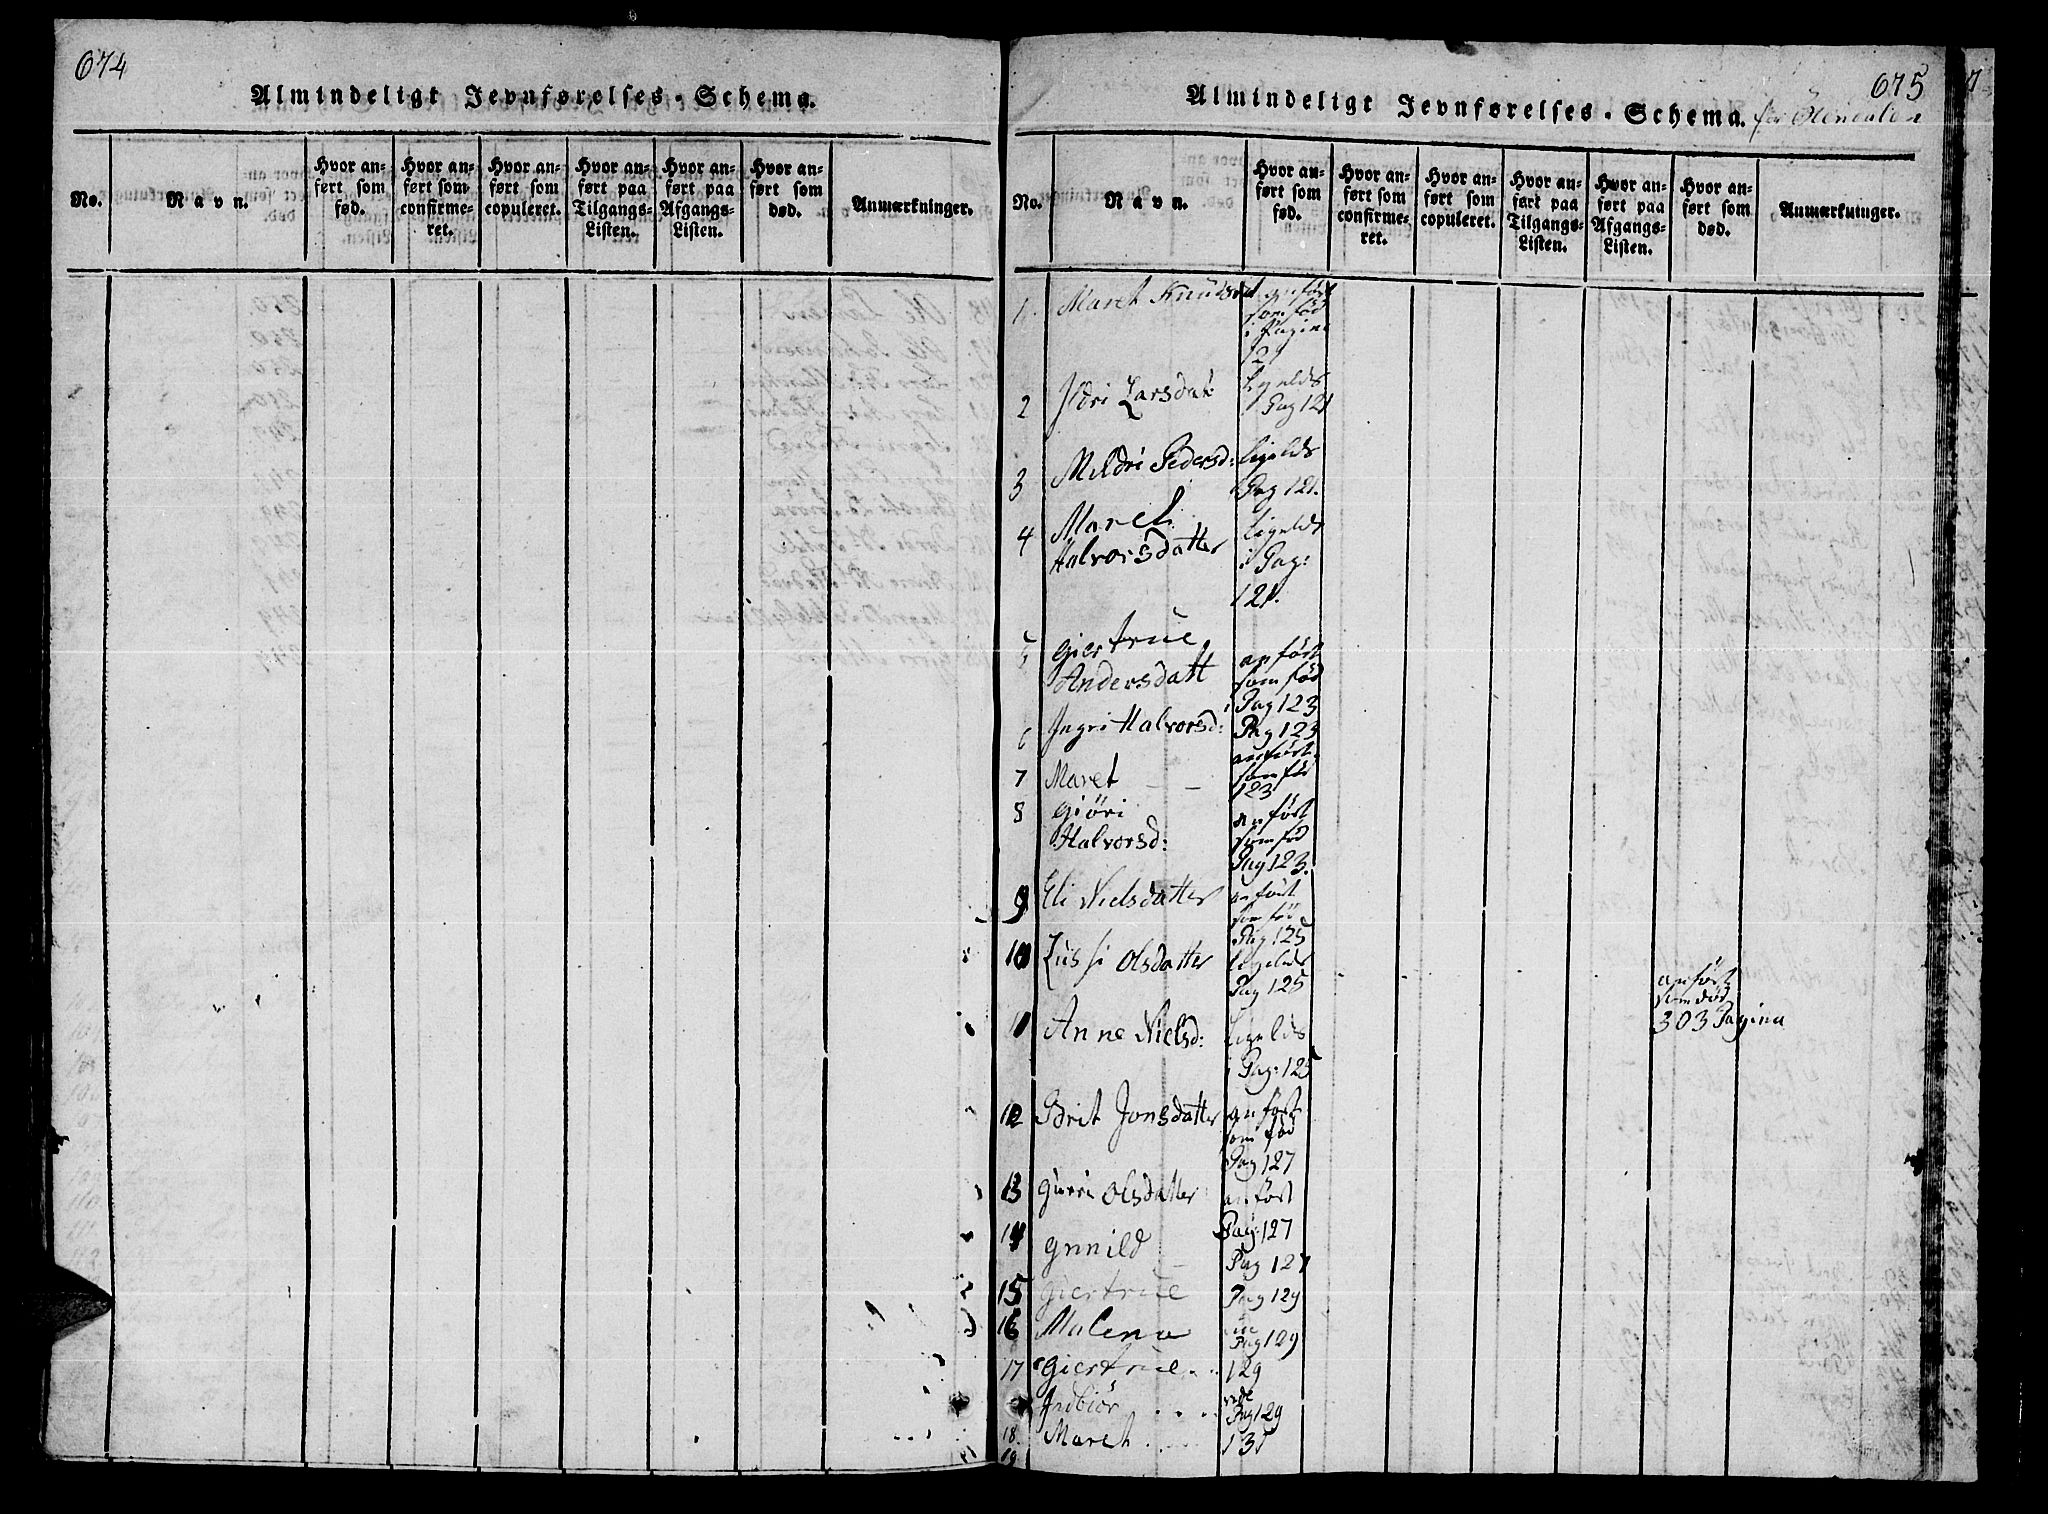 674
Almindeligt Jevnførelses-Schema.
No.
Navn.
Hvor an-
ført som
fød.
Hvor an-
ført som
confirme-
ret.
Hvor an-
ført som
copuleret.
Hvor an-
ført paa
Tilgangs-
Listen.
Hvor an-
ført paa
Afgangs-
Listen.
Hvor an-
ført som
død.
Anmærkninger.
675
Almindeligt Jevnførelses-Schema. for
No.
Navn.
Hvor an-
ført som
fød.
Hvor an-
ført som
confirme-
ret.
Hvor an-
ført som
copuleret.
Hvor an-
ført paa
Tilgangs-
Listen.
Hvor an-
ført paa
Afgangs-
Listen.
Hvor an-
ført som
død.
Anmærkninger.
1 Maret Knudsd anført
som fød
i Pagina
121
2 Ildri Larsdat: Ligelds
Pag 121
3 Mildri Pedersd: Ligelds
Pag 121.
4 Maret Ligelds
Halvorsdatter i Pag:
121.
5 Giertrue anført
Andersdatt som fød
Pag 123
6 Ingri Halvorsd: Pag 123
7 Maret — — anført
som fød
123
8 Giöri anført
Halvorsd: som fød
Pag 123.
9 Eli Nielsdatter anført
som fød
Pag 125
10 Lussi Olsdatter Ligelds
Pag 125
11 Anne Nielsd: Ligelds
i Pag: 125
anført
som død
303 Pagina
12 Gdrit Jonsdatter anført
som fød
Pag 127
13 Gurri Olsdatter anført
Pag: 127
14 Gunild — Pag 127
15 Giertrue Pag 129
16 Malena Pag 129
17 Giertrue . . 129
Indbiör . . . vide
Pag 129
18. Maret . . . 131
19